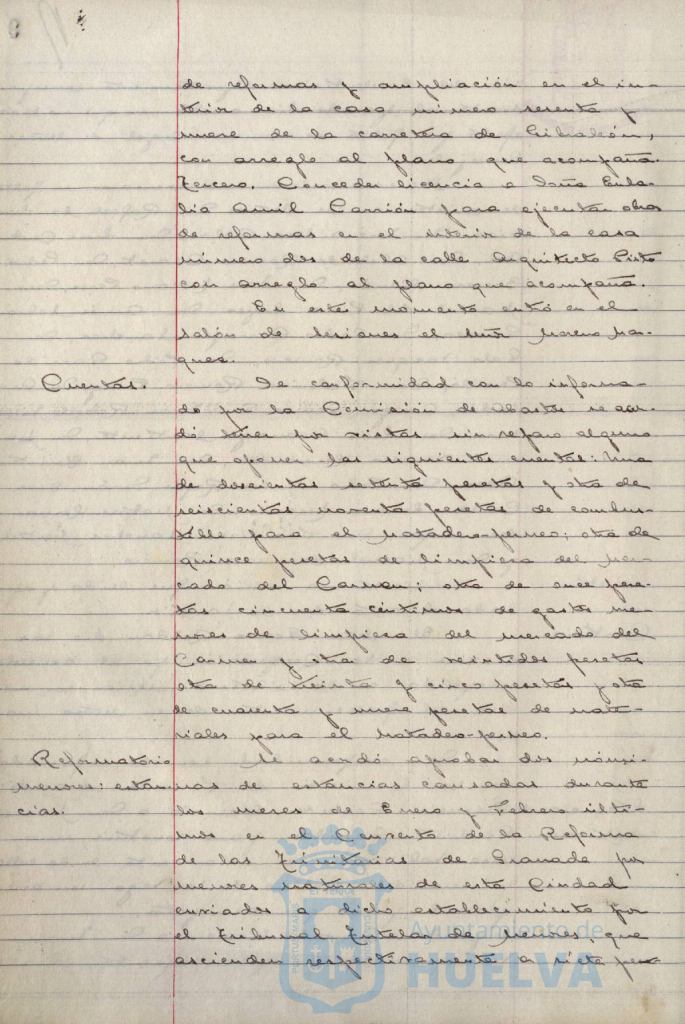 de reformas y ampliación en el in-
terior de la casa número sesenta y
nueve de la carretera de Gibraleón,
con arreglo al plano que acompaña.
Tercero. Conceder licencia a Doña Eula-
lia Carrión para ejecutar obras
de reformas en el interior de la casa
número dos de la calle Arquitecto Pinto
con arreglo al plano que acompaña.
En este momento entró en el
salón de sesiones el señor Moreno Mar-
quez.
Cuentas. De conformidad con lo informa-
do por la Comisión de Abastos se acor-
dó tener por vistas sin reparo alguno
que oponer las siguientes cuentas: Una
de doscientas setenta pesetas y otra de
seiscientas noventa pesetas de combus-
tible para el Matadero-perneo; otra de
quince pesetas de limpieza del Mer-
cado del Carmen; otra de once pese-
tas cincuenta céntimos de gastos me-
nores de limpieza del mercado del
Carmen y otra de veintidos pesetas
otra de treinta y cinco pesetas y otra
de cuarenta y nueve pesetas de mate-
riales para el matadero-perneo.
Reformatorio Se acordó aprobar dos nómi-
menores: estan- nas de estancias causadas durante
cias. los meses de Enero y Febrero últi-
mos en el Convento de la Reforma
de las Trinitarias de Granada por
menores naturales de esta Ciudad
enviados a dicho establecimiento por
el Tribunal Tutelar de Menores, que
ascienden respectivamente a siete pe-
Ayuntamiento de
HUELVA